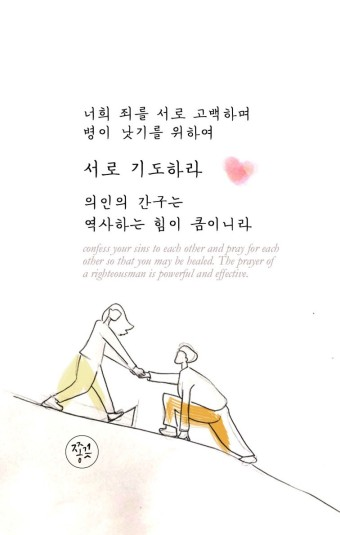 너희 죄를 서로 고백하며
병이 낫기를 위하여
서로 기도하라
의인의 간구는
역사하는 힘이 큼이니라
confess your sins to each other and pray for each
other so that you may be healed. The prayer of
a righteousman is powerful and effective.